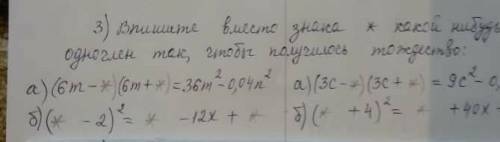 3) Впишите вместо знака * какой нибудь
одночлен так, чтобы получилось тождество:
а) (6m - *)(6m + *) = 36m² - 0,04n² а) (3c - *)(3c + *) = 9c² - 0,
б) (* - 2)² = * - 12x + * б) (* + 4)² = * + 40x -